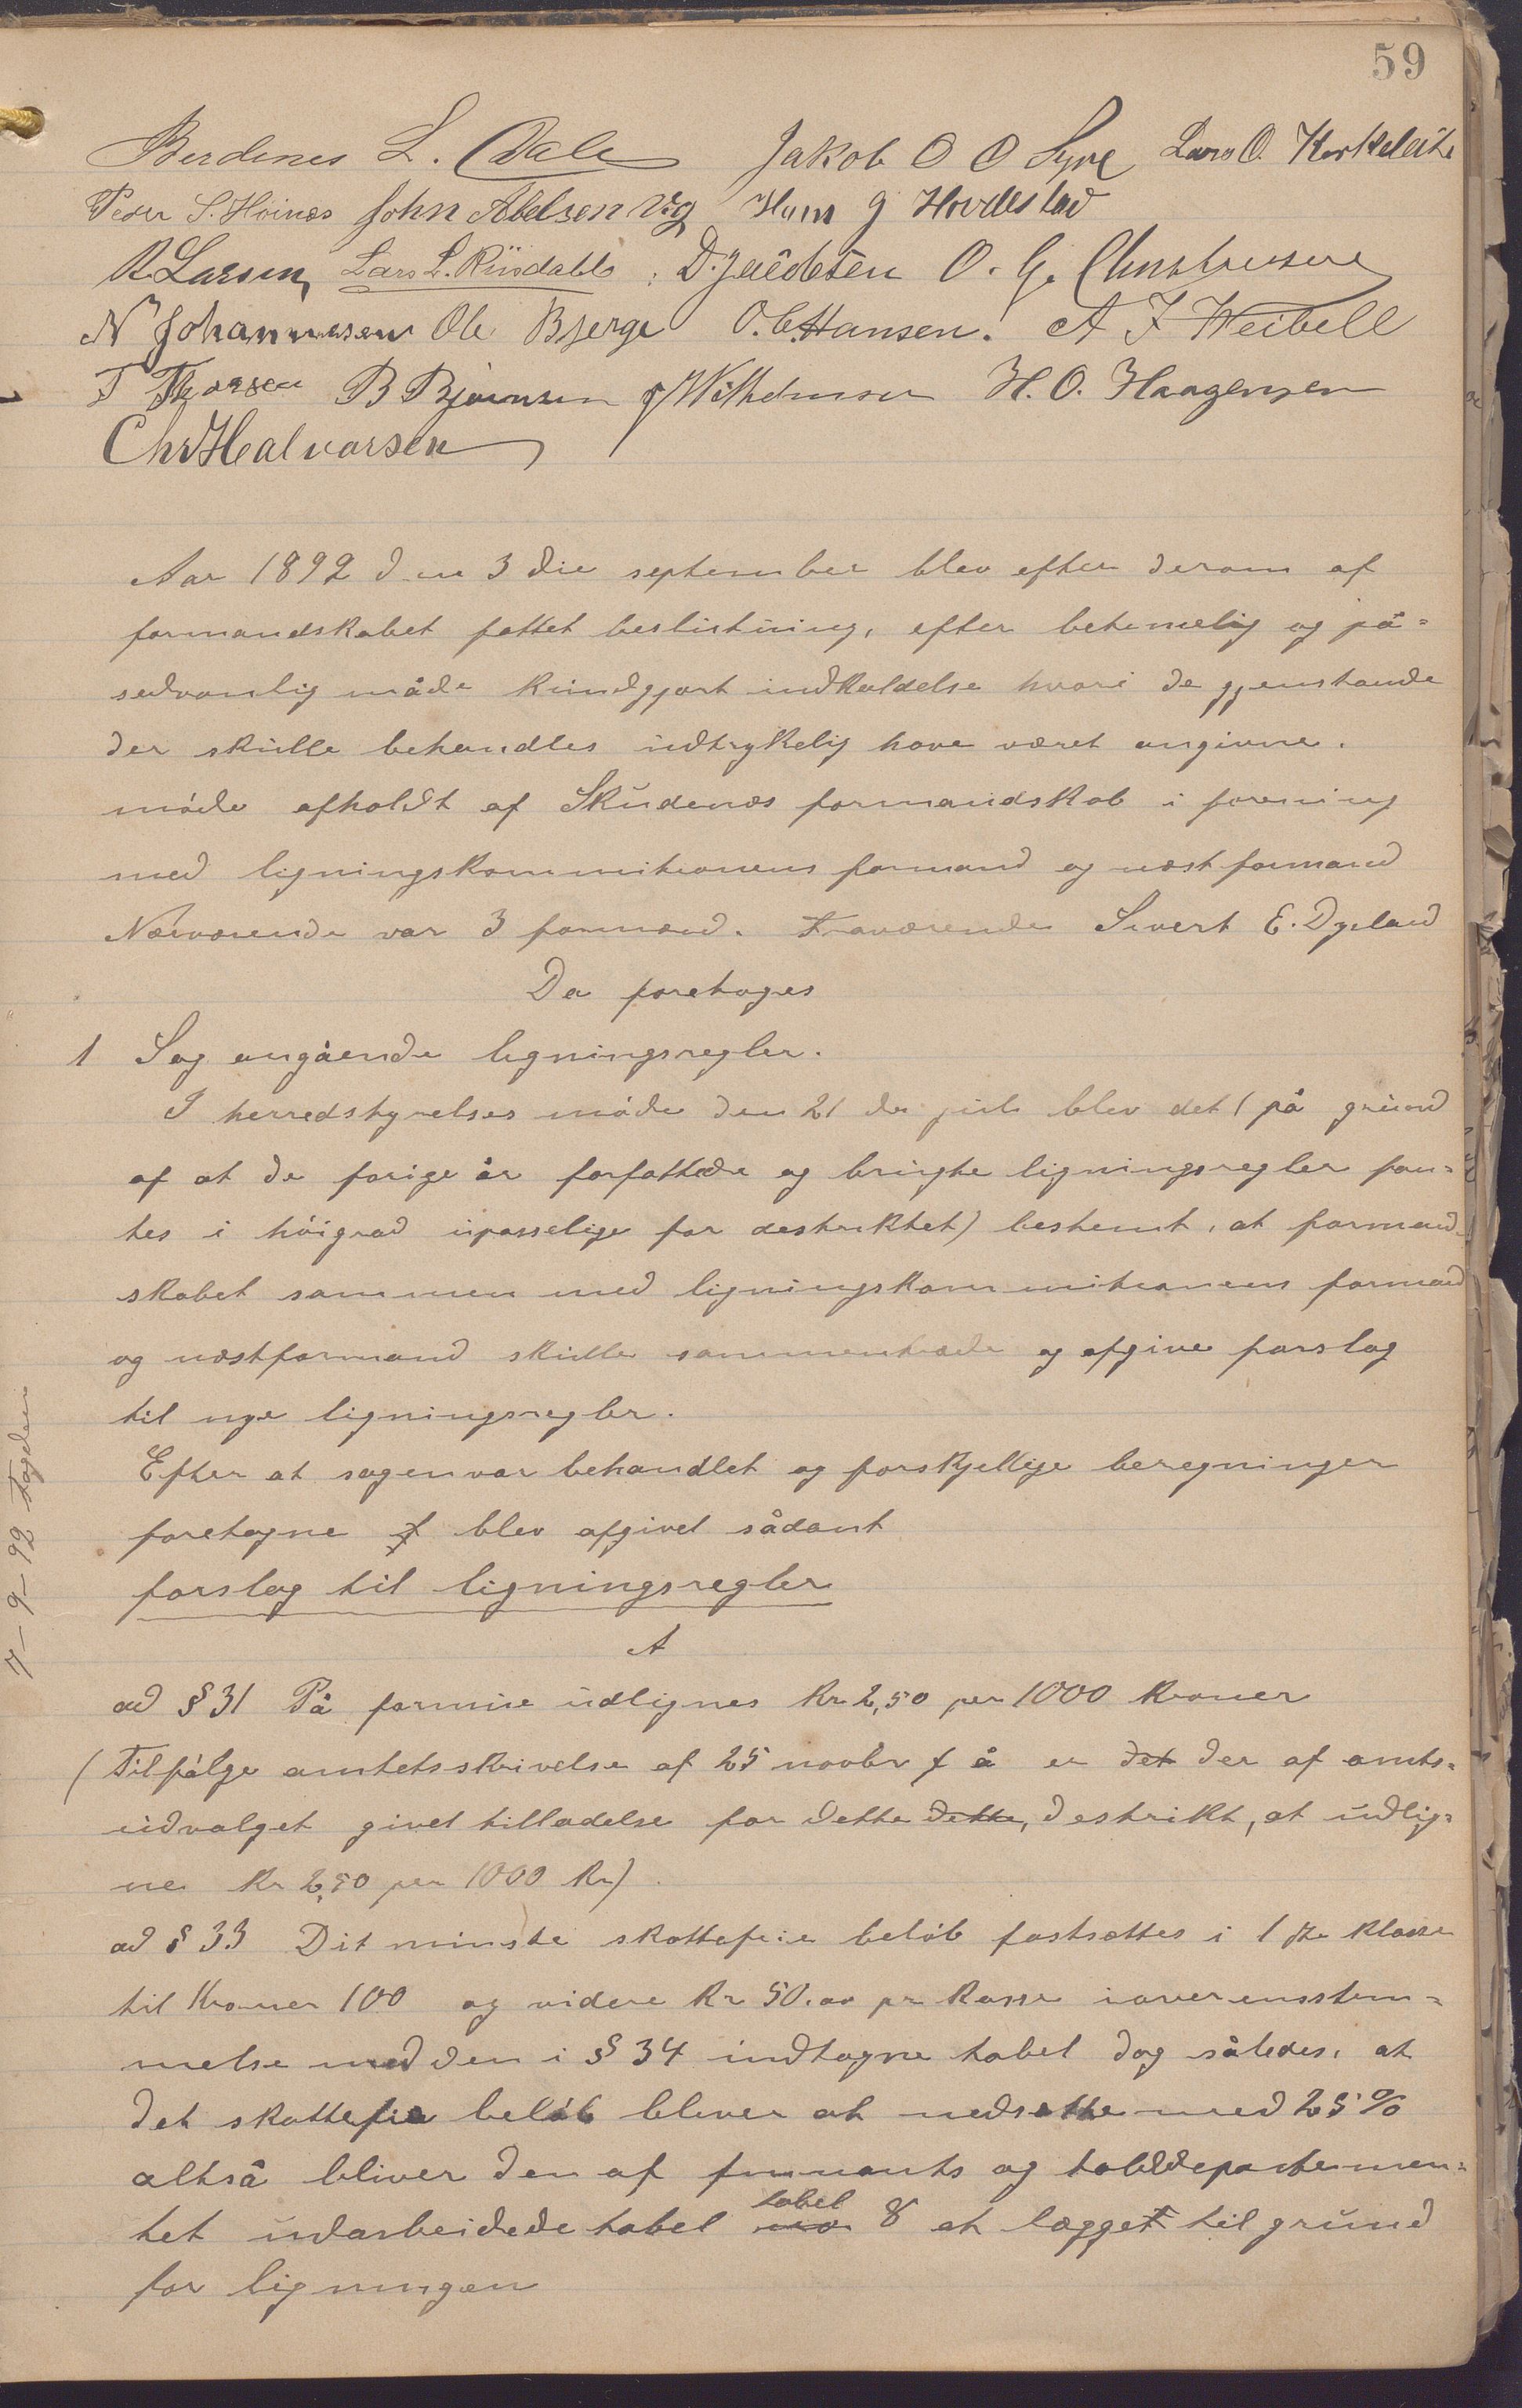 59
Berdines L. Dale Jakob O O Syre Lars O. Korkeleite
Peder S. Höines John Abelsen Vig Hans J Hovdestad
R Larsen Lars L. Risdahl D. Jacobsen O. G. Christensen
N Johannesen Ole Bjerge O. C. Hansen. A J Weibell
T Thorsen B Bjørnsen J Wilhelmsen H. O. Haagensen
Chr Halvorsen
Aar 1892 den 3die september blev efter derom af
formandskabet fattet beslutning, efter betimelig og på-
sedvanlig måde kundgjort indkaldelse hvori de gjenstande
der skulle behandles udtrykelig have været angivne.
møde afholdt af Skudenæs formandskab i forening
med ligningskommitionens formand og næstformand
Nærværende var 3 formænd. Fraværende Sivert E. Dygland
Da foretoges
1 Sag angående ligningsregler.
I herredstyrelses møde den 21 de juli blev det (på grund
af at de forige år forfattede og brugte ligningsregler fan-
tes i höigrad upasselige for destriktet) bestemt, at formand-
skabet sammen med ligningskommitionens formand
og næstformand skulle sammentræde og afgive forslag
til nye ligningsregler.
Efter at sagen var behandlet og forskjellige beregninger
foretagne f blev afgivet sådant
forslag til ligningsregler
A
ad § 31 På formue udlignes Kr 2,50 per 1000 Kroner
(Tilfølge amtets skrivelse af 25 novbr f å er det der af amts-
udvalget givet tilladelse for dette dette, destrikt, at udlig-
ne Kr 2,50 per 1000 Kr)
ad § 33 Dit minste skattefrie beløb fastsættes i 1ste klasse
til Kroner 100 og videre Kr 50.00 pr Kasse i overensstem-
melse med den i § 34 indtagne tabel dog således, at
det skattefrie beløb bliver at nedsætte med 25 %
altså bliver den af finnants og tolddepartemen-
tet udarbeidede tabel no tabel 8 at lægget til grund
for ligningen
7-9-92 Fogden